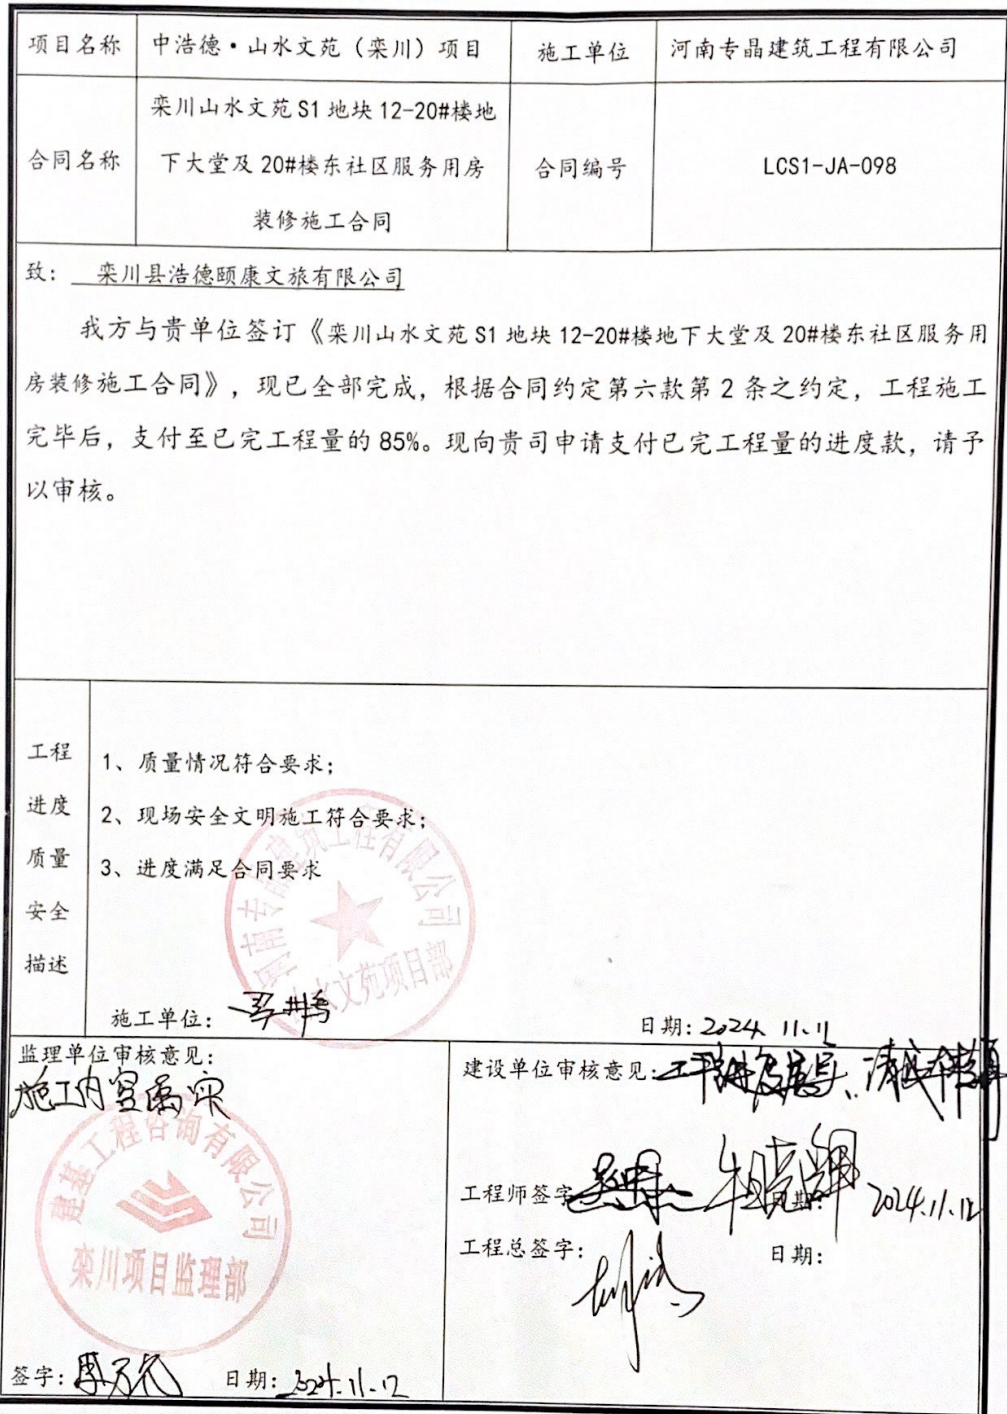 项目名称 中浩德·山水文苑（栾川）项目 施工单位 河南专晶建筑工程有限公司
合同名称 栾川山水文苑S1地块12-20#楼地
下大堂及20#楼东社区服务用房
装修施工合同
合同编号 LCS1-JA-098
致：栾川县浩德颐康文旅有限公司
我方与贵单位签订《栾川山水文苑S1地块12-20#楼地下大堂及20#楼东社区服务用
房装修施工合同》，现已全部完成，根据合同约定第六款第2条之约定，工程施工
完毕后，支付至已完工程量的85%。现向贵司申请支付已完工程量的进度款，请予
以审核。
工程
进度
质量
安全
描述
1、质量情况符合要求；
2、现场安全文明施工符合要求；
3、进度满足合同要求
河南专晶建筑工程有限公司
山水文苑项目部
施工单位： 日期：2024.11.11
监理单位审核意见：
施工内容属实
建基工程咨询有限公司
栾川项目监理部
签字： 日期：2024.11.12
建设单位审核意见：
工程师签字： 日期：2024.11.12
工程总签字： 日期：